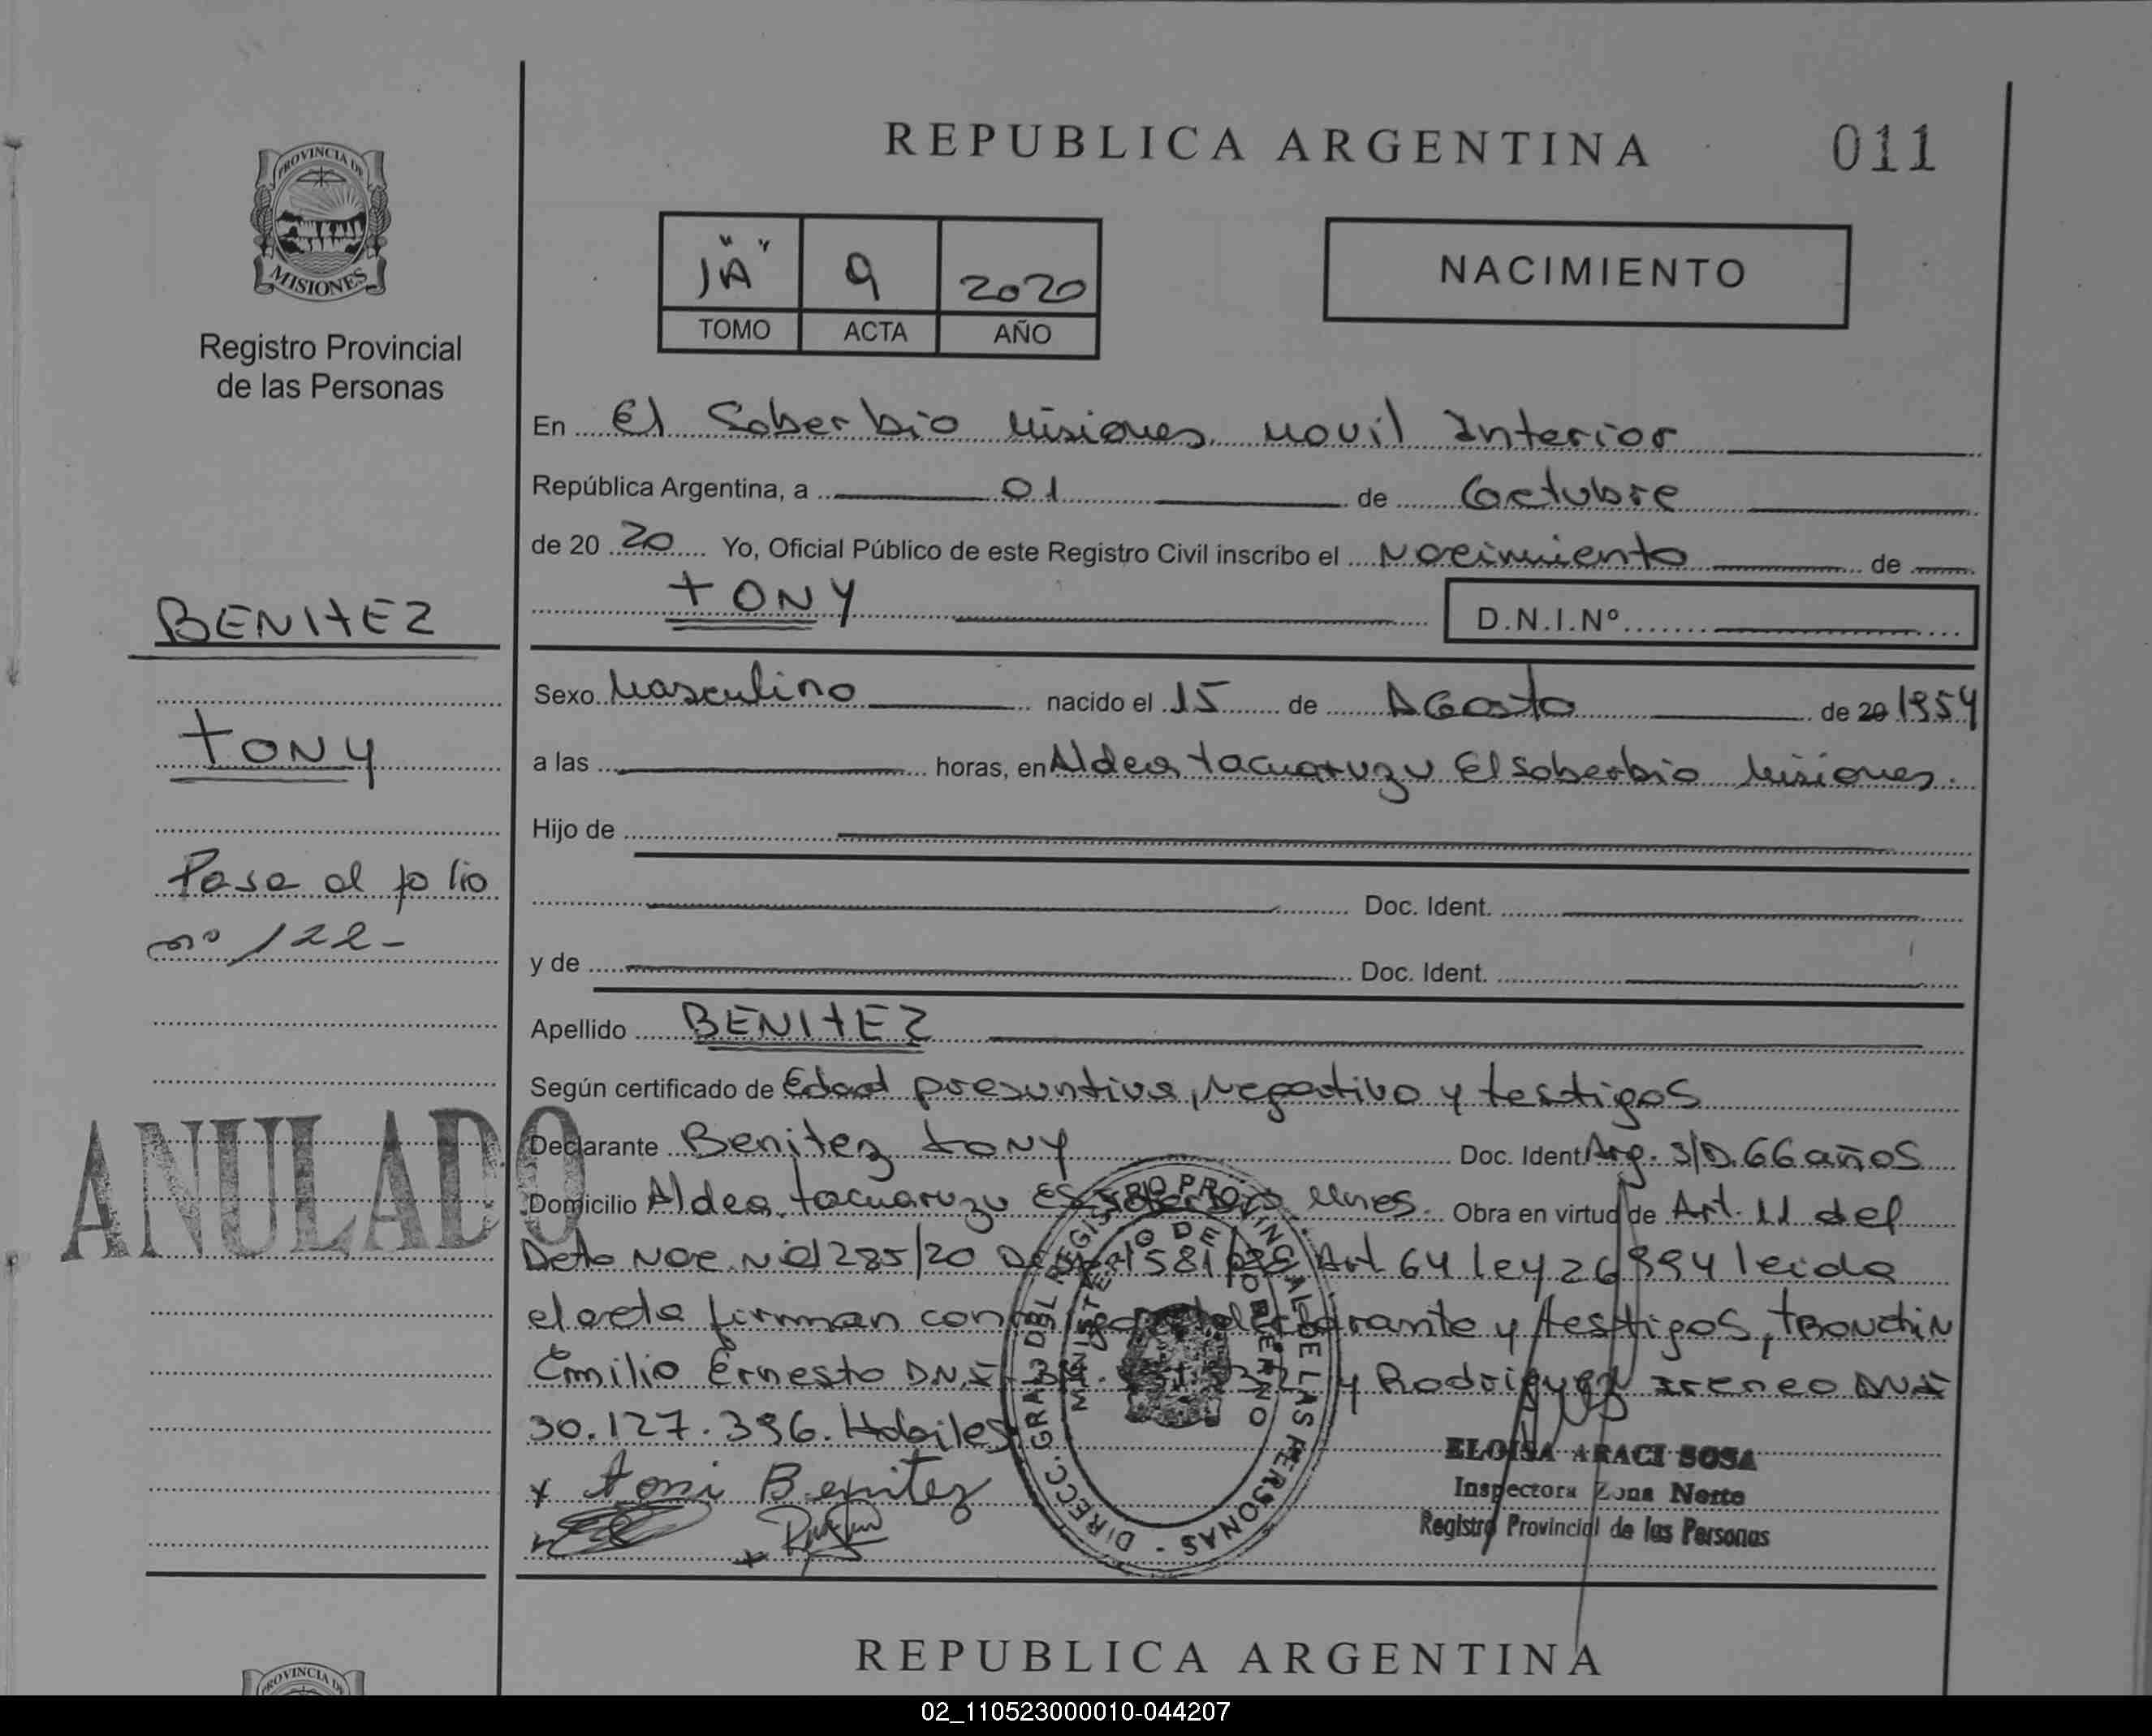 REPUBLICA ARGENTINA
011
PROVINCIA DE
MISIONES
Registro Provincial
de las Personas
"JA" 9 2020
TOMO ACTA AÑO
NACIMIENTO
En El Soberbio Misiones Movil Interior
República Argentina, a 01 de Octubre
de 20 20 Yo, Oficial Público de este Registro Civil inscribo el Nacimiento de
TONY D.N.I.Nº
BENITEZ
TONY
Pasa al folio
nº 122-
ANULADO
Sexo Masculino nacido el 15 de Agosto de 20 1954
a las horas, en Aldea Tacuaruzu El soberbio Misiones.
Hijo de
Doc. Ident.
y de Doc. Ident.
Apellido BENITEZ
Según certificado de Edad presuntiva, Negativo y testigos
Declarante Benitez TONY Doc. Ident. Arg. S/D. 66 años
Domicilio Aldea Tacuaruzu El Soberbio Mnes. Obra en virtud de Art. 11 del
Deto Nac. Nº 285/20 Art 64 ley 26994 leida
el acta firman declarante y testigos, TRONCHIN
Emilio Ernesto D.N.I. y Rodriguez Ireneo DNI
30.127.396. Habiles
x Toni Benitez
DIREC. GRAL. DEL REGISTRO PROVINCIAL DE LAS PERSONAS -
MINISTERIO DE GOBIERNO
ELOISA ARACI SOSA
Inspectora Zona Norte
Registro Provincial de las Personas
REPUBLICA ARGENTINA
PROVINCIA DE
02_110523000010-044207